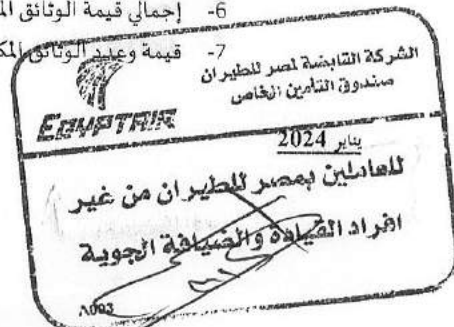 6- إجمالي قيمة الوثائق
7- قيمة وعدد الوثائق
الشركة القابضة لمصر للطيران
صندوق التأمين الخاص
EGYPTAIR
يناير 2024
للعاملين بمصر للطيران من غير
افراد القيادة والضيافة الجوية
A003